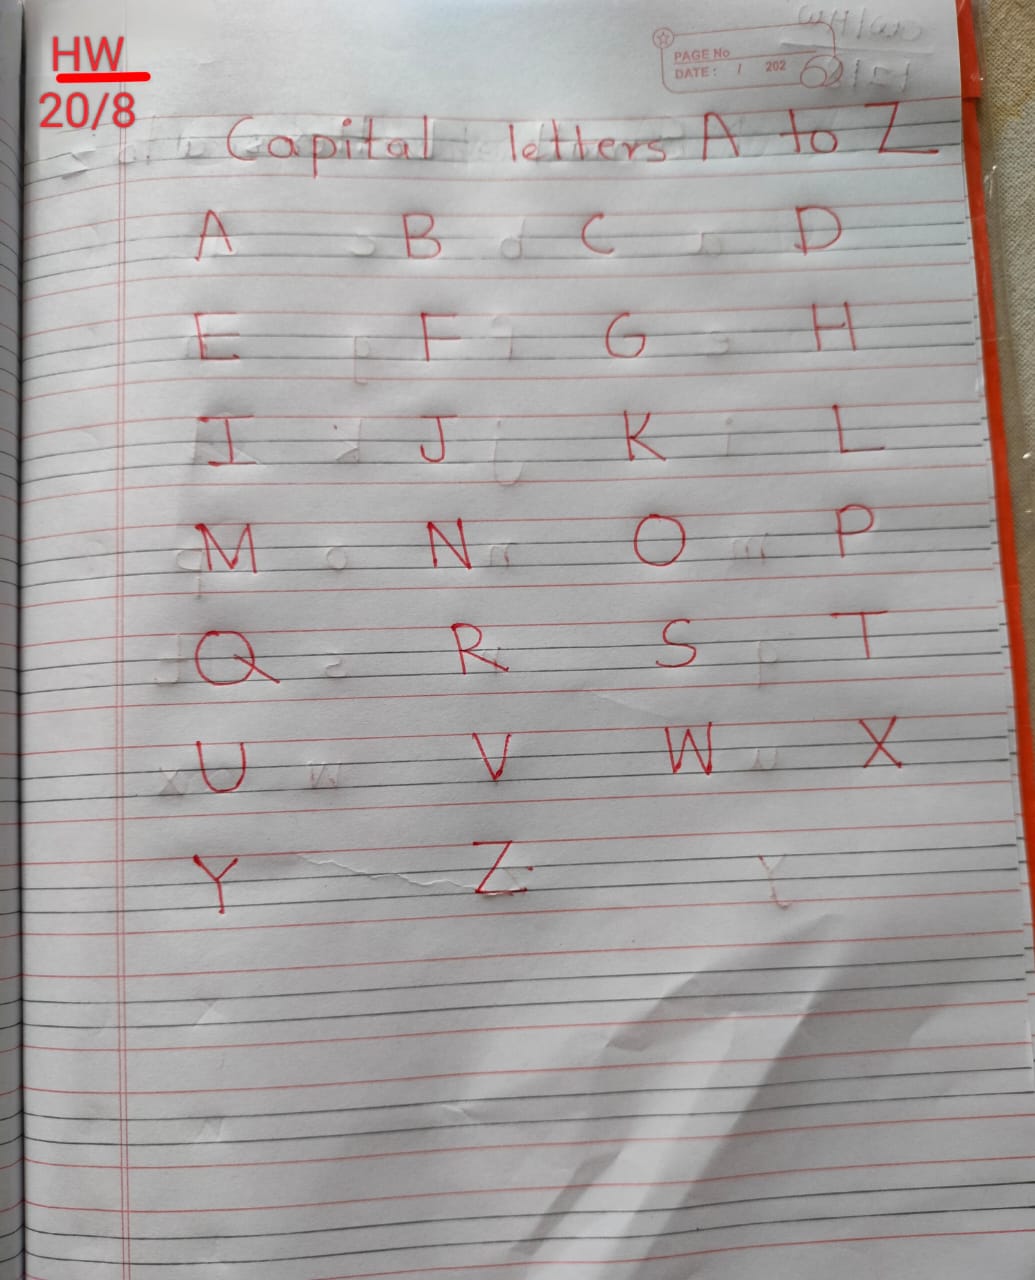 HW
20/8
PAGE No
DATE: / 202
Capital letters A to Z
A B C D
E F G H
I J K L
M N O P
Q R S T
U V W X
Y Z